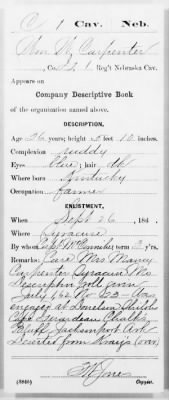 C | 1 | Cav. | Neb.
Wm W. Carpenter
, Co. 1 Reg't Nebraska Cav.
Appears on
Company Descriptive Book
of the organization named above.
DESCRIPTION.
Age 26 years; height 5 feet 10 inches.
Complexion ruddy
Eyes blue; hair dk
Where born Kentucky
Occupation farmer
ENLISTMENT.
When Sept 26, 186 .
Where Syracuse
By whom term 3 y'rs.
Remarks: Care Mrs Mancy
Carpenter Syracuse Mo
Descriptive roll
July 1, 62 No 63
engaged at Donelson Shiloh
Cape Girardeau Chalk
Bluff Jacksonport Ark
Deserted from (over)
Copyist.